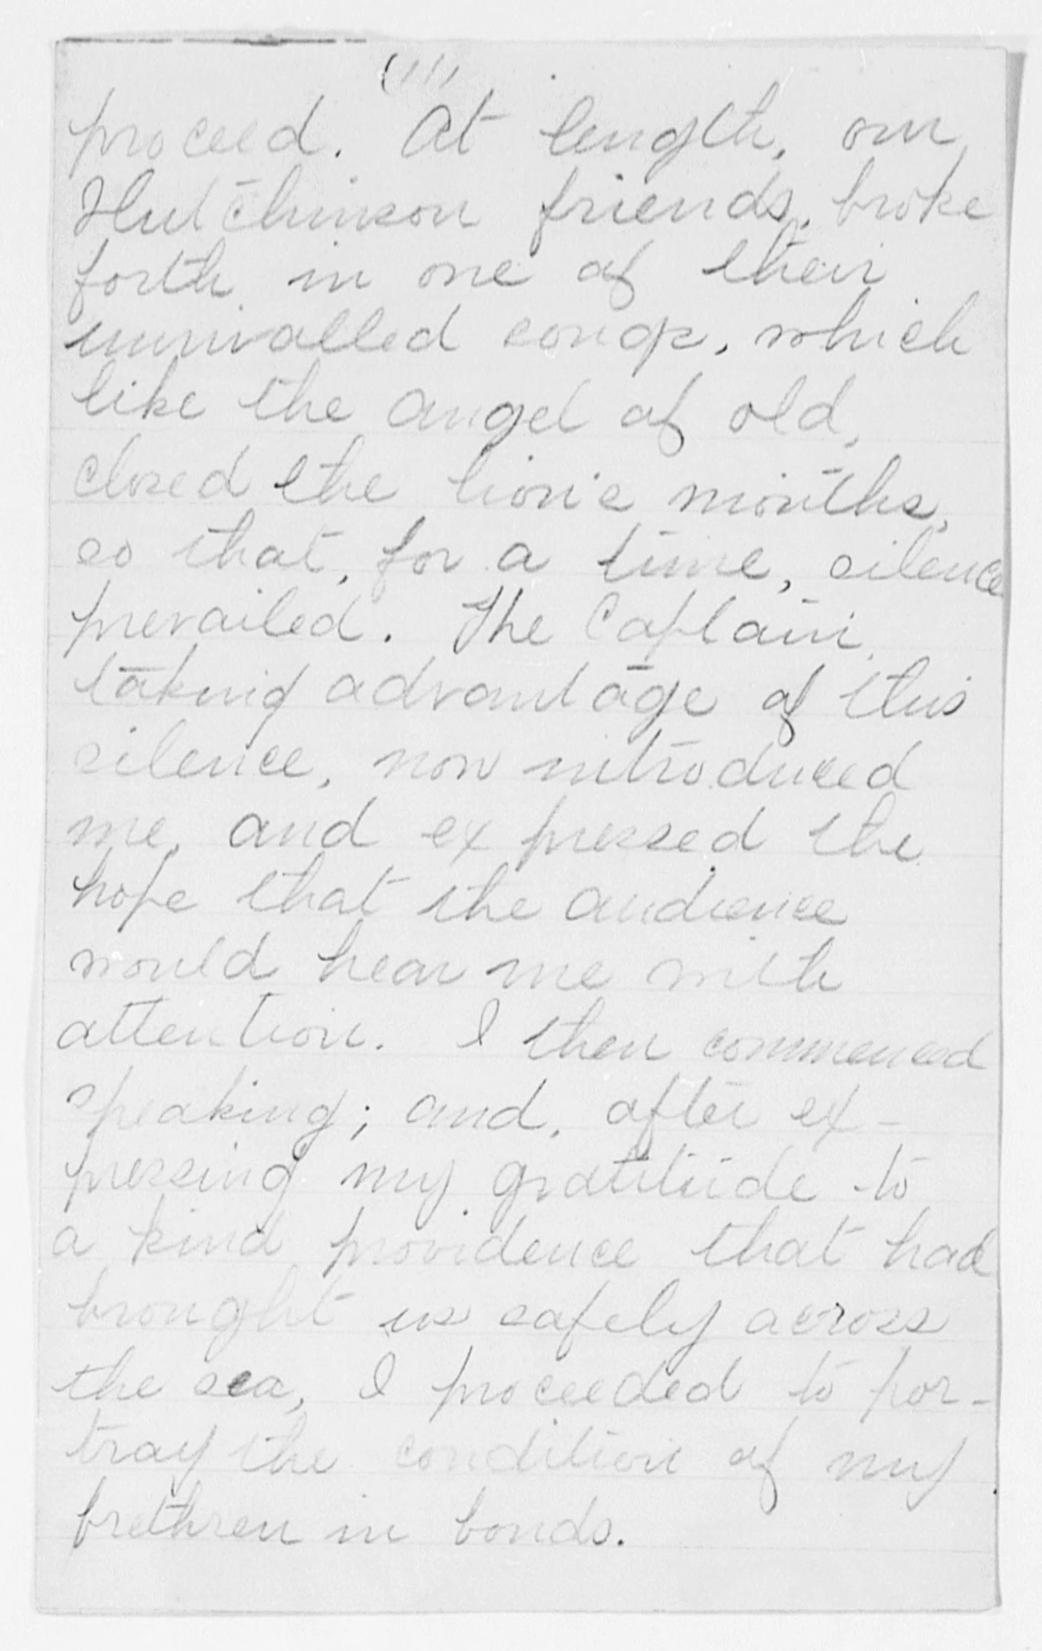 (11)
proceed. At length, our
Hutchinson friends, broke
forth in one of their
unrivalled songs, which
like the angel of old,
closed the lion's mouths,
so that, for a time, silence
prevailed. The Captain,
taking advantage of this
silence, now introduced
me, and expressed the
hope that the audience
would hear me with
attention. I then commenced
speaking; and, after ex-
pressing my gratitude to
a kind providence that had
brought us safely across
the sea, I proceeded to por-
tray the condition of my
brethren in bonds.